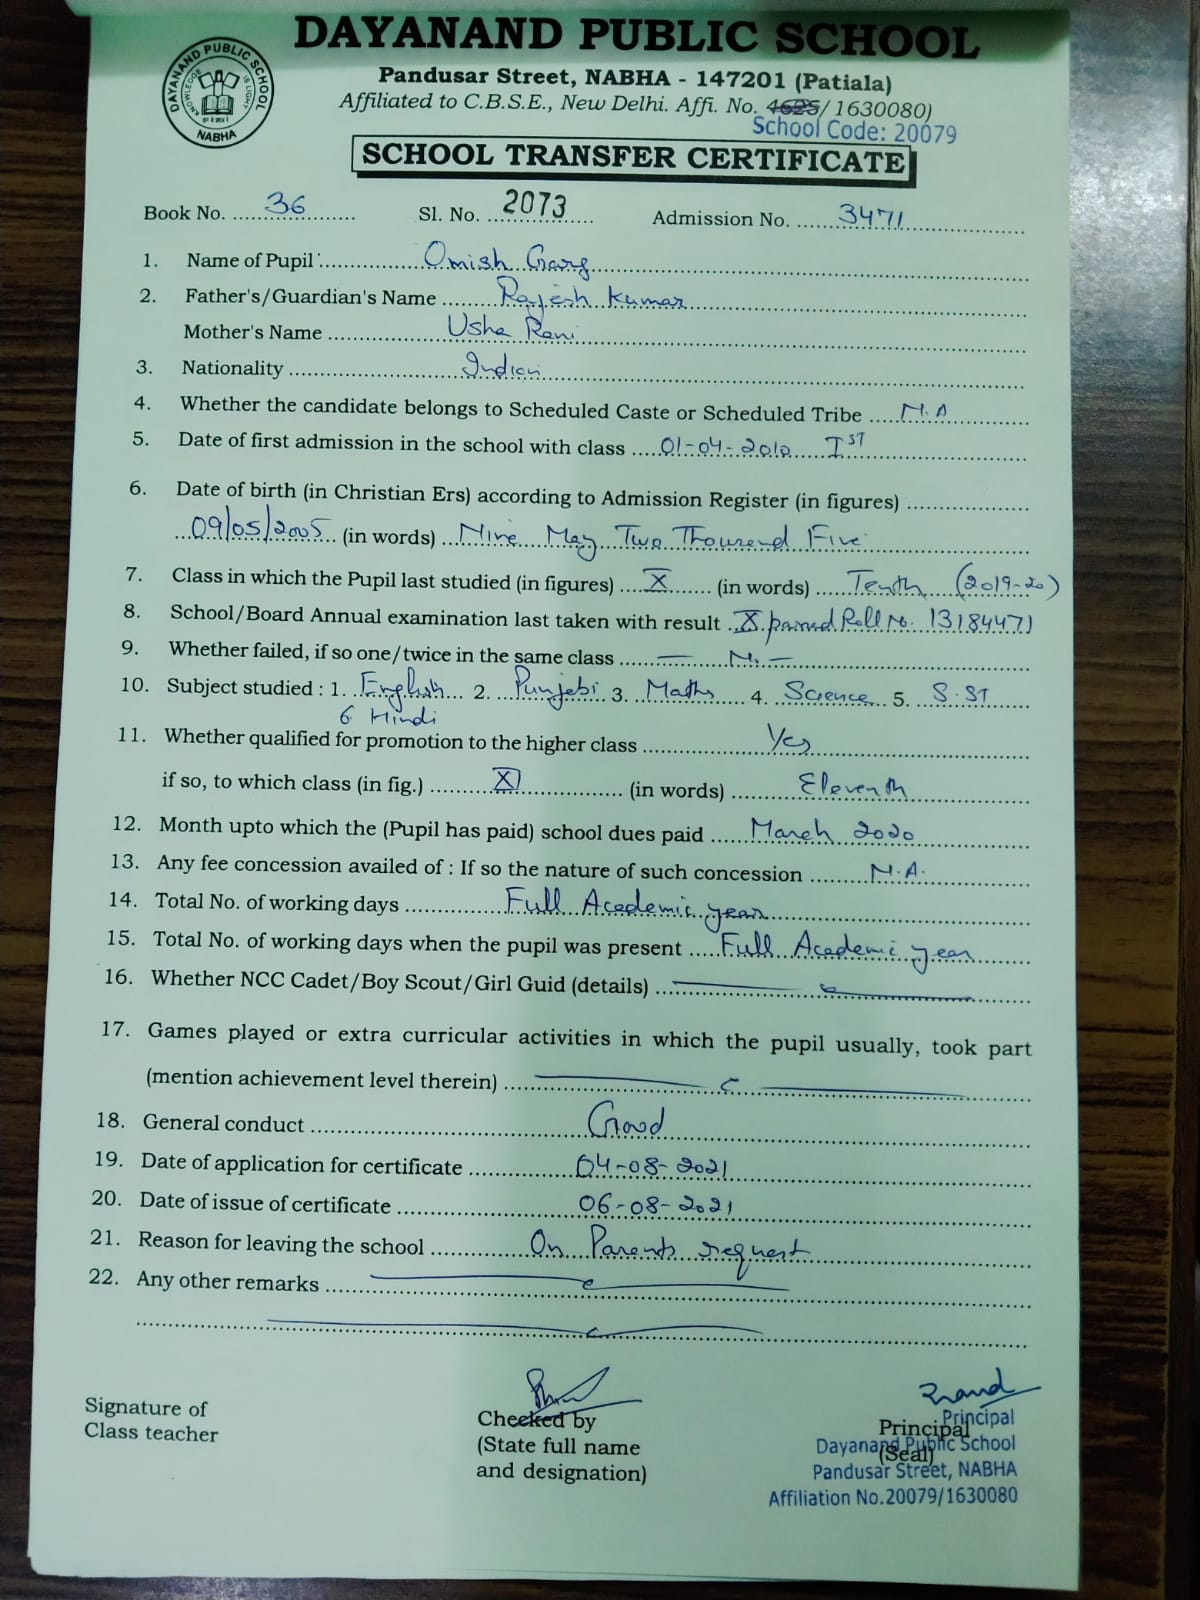 DAYANAND PUBLIC SCHOOL
DAYANAND PUBLIC SCHOOL
KNOWLEDGE IS LIGHT
NABHA
Pandusar Street, NABHA - 147201 (Patiala)
Affiliated to C.B.S.E., New Delhi. Affi. No. 4625/ 1630080)
School Code: 20079
SCHOOL TRANSFER CERTIFICATE
Book No. 36 Sl. No. 2073 Admission No. 3471
1. Name of Pupil Omish Garg
2. Father's/Guardian's Name Rajesh Kumar
Mother's Name Usha Rani
3. Nationality Indian
4. Whether the candidate belongs to Scheduled Caste or Scheduled Tribe N.A
5. Date of first admission in the school with class 01-04-2010 Iˢᵀ
6. Date of birth (in Christian Ers) according to Admission Register (in figures)
09/05/2005 (in words) Nine May Two Thousend Five
7. Class in which the Pupil last studied (in figures) X (in words) Tenth (2019-20)
8. School/Board Annual examination last taken with result X passed Roll No. 13184471
9. Whether failed, if so one/twice in the same class — N. —
10. Subject studied : 1. English 2. Punjabi 3. Maths 4. Science 5. S.ST
6 Hindi
11. Whether qualified for promotion to the higher class Yes
if so, to which class (in fig.) XI (in words) Eleventh
12. Month upto which the (Pupil has paid) school dues paid March 2020
13. Any fee concession availed of : If so the nature of such concession N.A.
14. Total No. of working days Full Academic year
15. Total No. of working days when the pupil was present Full Academic year
16. Whether NCC Cadet/Boy Scout/Girl Guid (details)
17. Games played or extra curricular activities in which the pupil usually, took part
(mention achievement level therein)
18. General conduct Good
19. Date of application for certificate 04-08-2021
20. Date of issue of certificate 06-08-2021
21. Reason for leaving the school On Parents request
22. Any other remarks
Signature of
Class teacher
Checked by
(State full name
and designation)
Principal
(Seal)
Principal
Dayanand Public School
Pandusar Street, NABHA
Affiliation No.20079/1630080